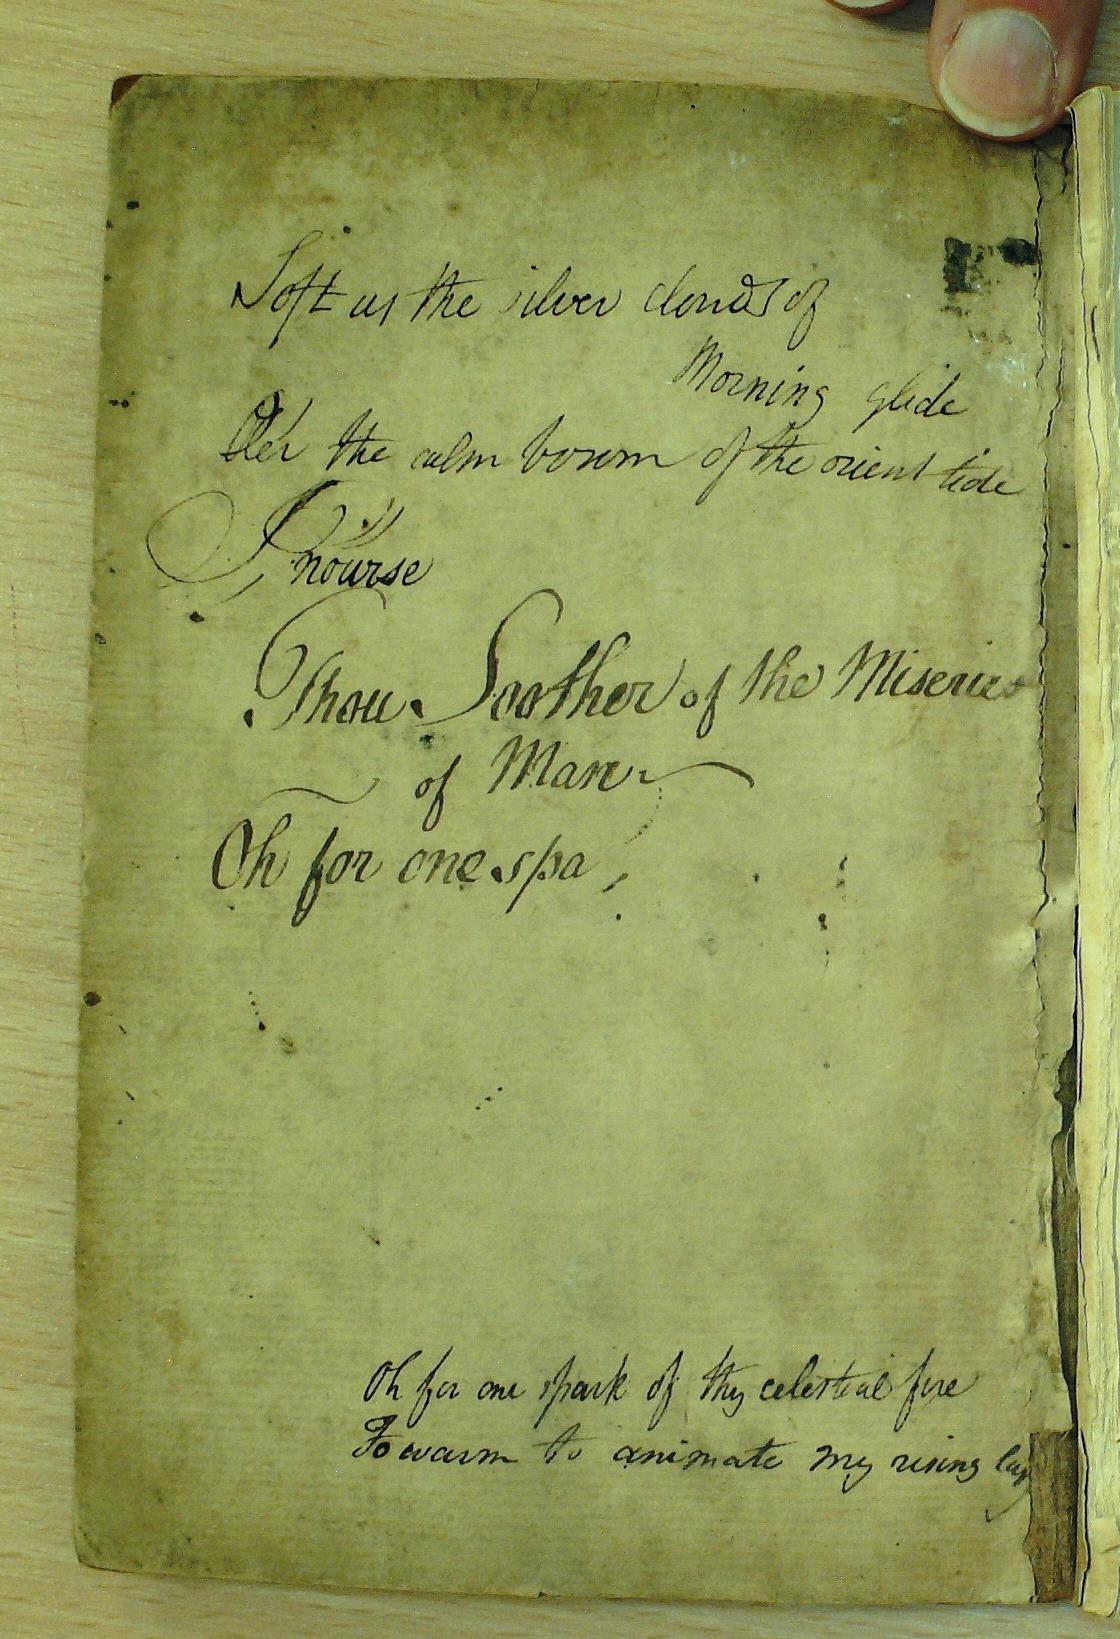 Soft as the silver clouds of
Morning glide
O'er the calm bosom of the orient tide
nourse
Thou Soother of the Miseries
of Man
Oh for one spa
Oh for one spark of thy celestial fire
To warm to animate my rising